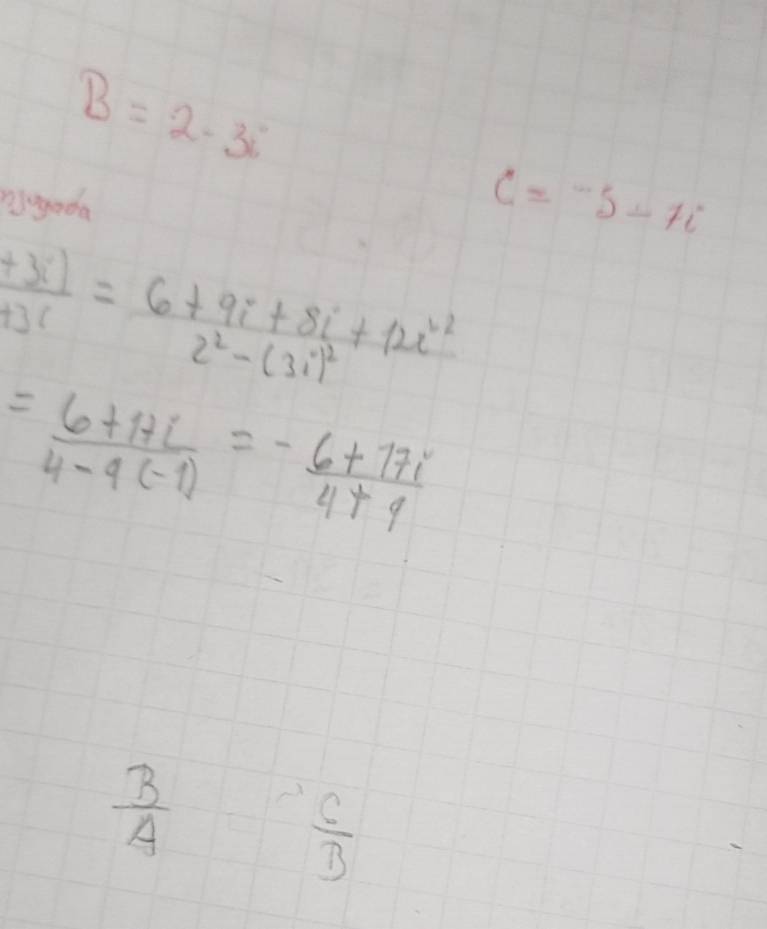 B = 2 - 3i
C = -5 - 7i
+3i) / +3i = 6 + 9i + 8i + 12i² / 2² - (3i)²
= 6 + 17i / 4 - 9(-1) = - 6 + 17i / 4 + 9
B / A C / B